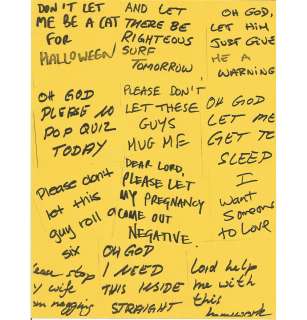 DON'T LET
ME BE A CAT
FOR
HALLOWEEN
AND LET
THERE BE
RIGHTEOUS
SURF
TOMORROW
OH GOD,
LET HIM
JUST GIVE
ME A
WARNING
OH GOD
PLEASE NO
POP QUIZ
TODAY
PLEASE DON'T
LET THESE
GUYS
MUG ME
OH GOD
LET ME
GET TO
SLEEP
Please don't
let this
guy roll a
six
DEAR LORD,
PLEASE LET
MY PREGNANCY
COME OUT
NEGATIVE
I
Want
Someone
to Love
stop
wife
nagging
OH GOD
I NEED
THIS INSIDE
STRAIGHT
Lord help
me with
this
homework